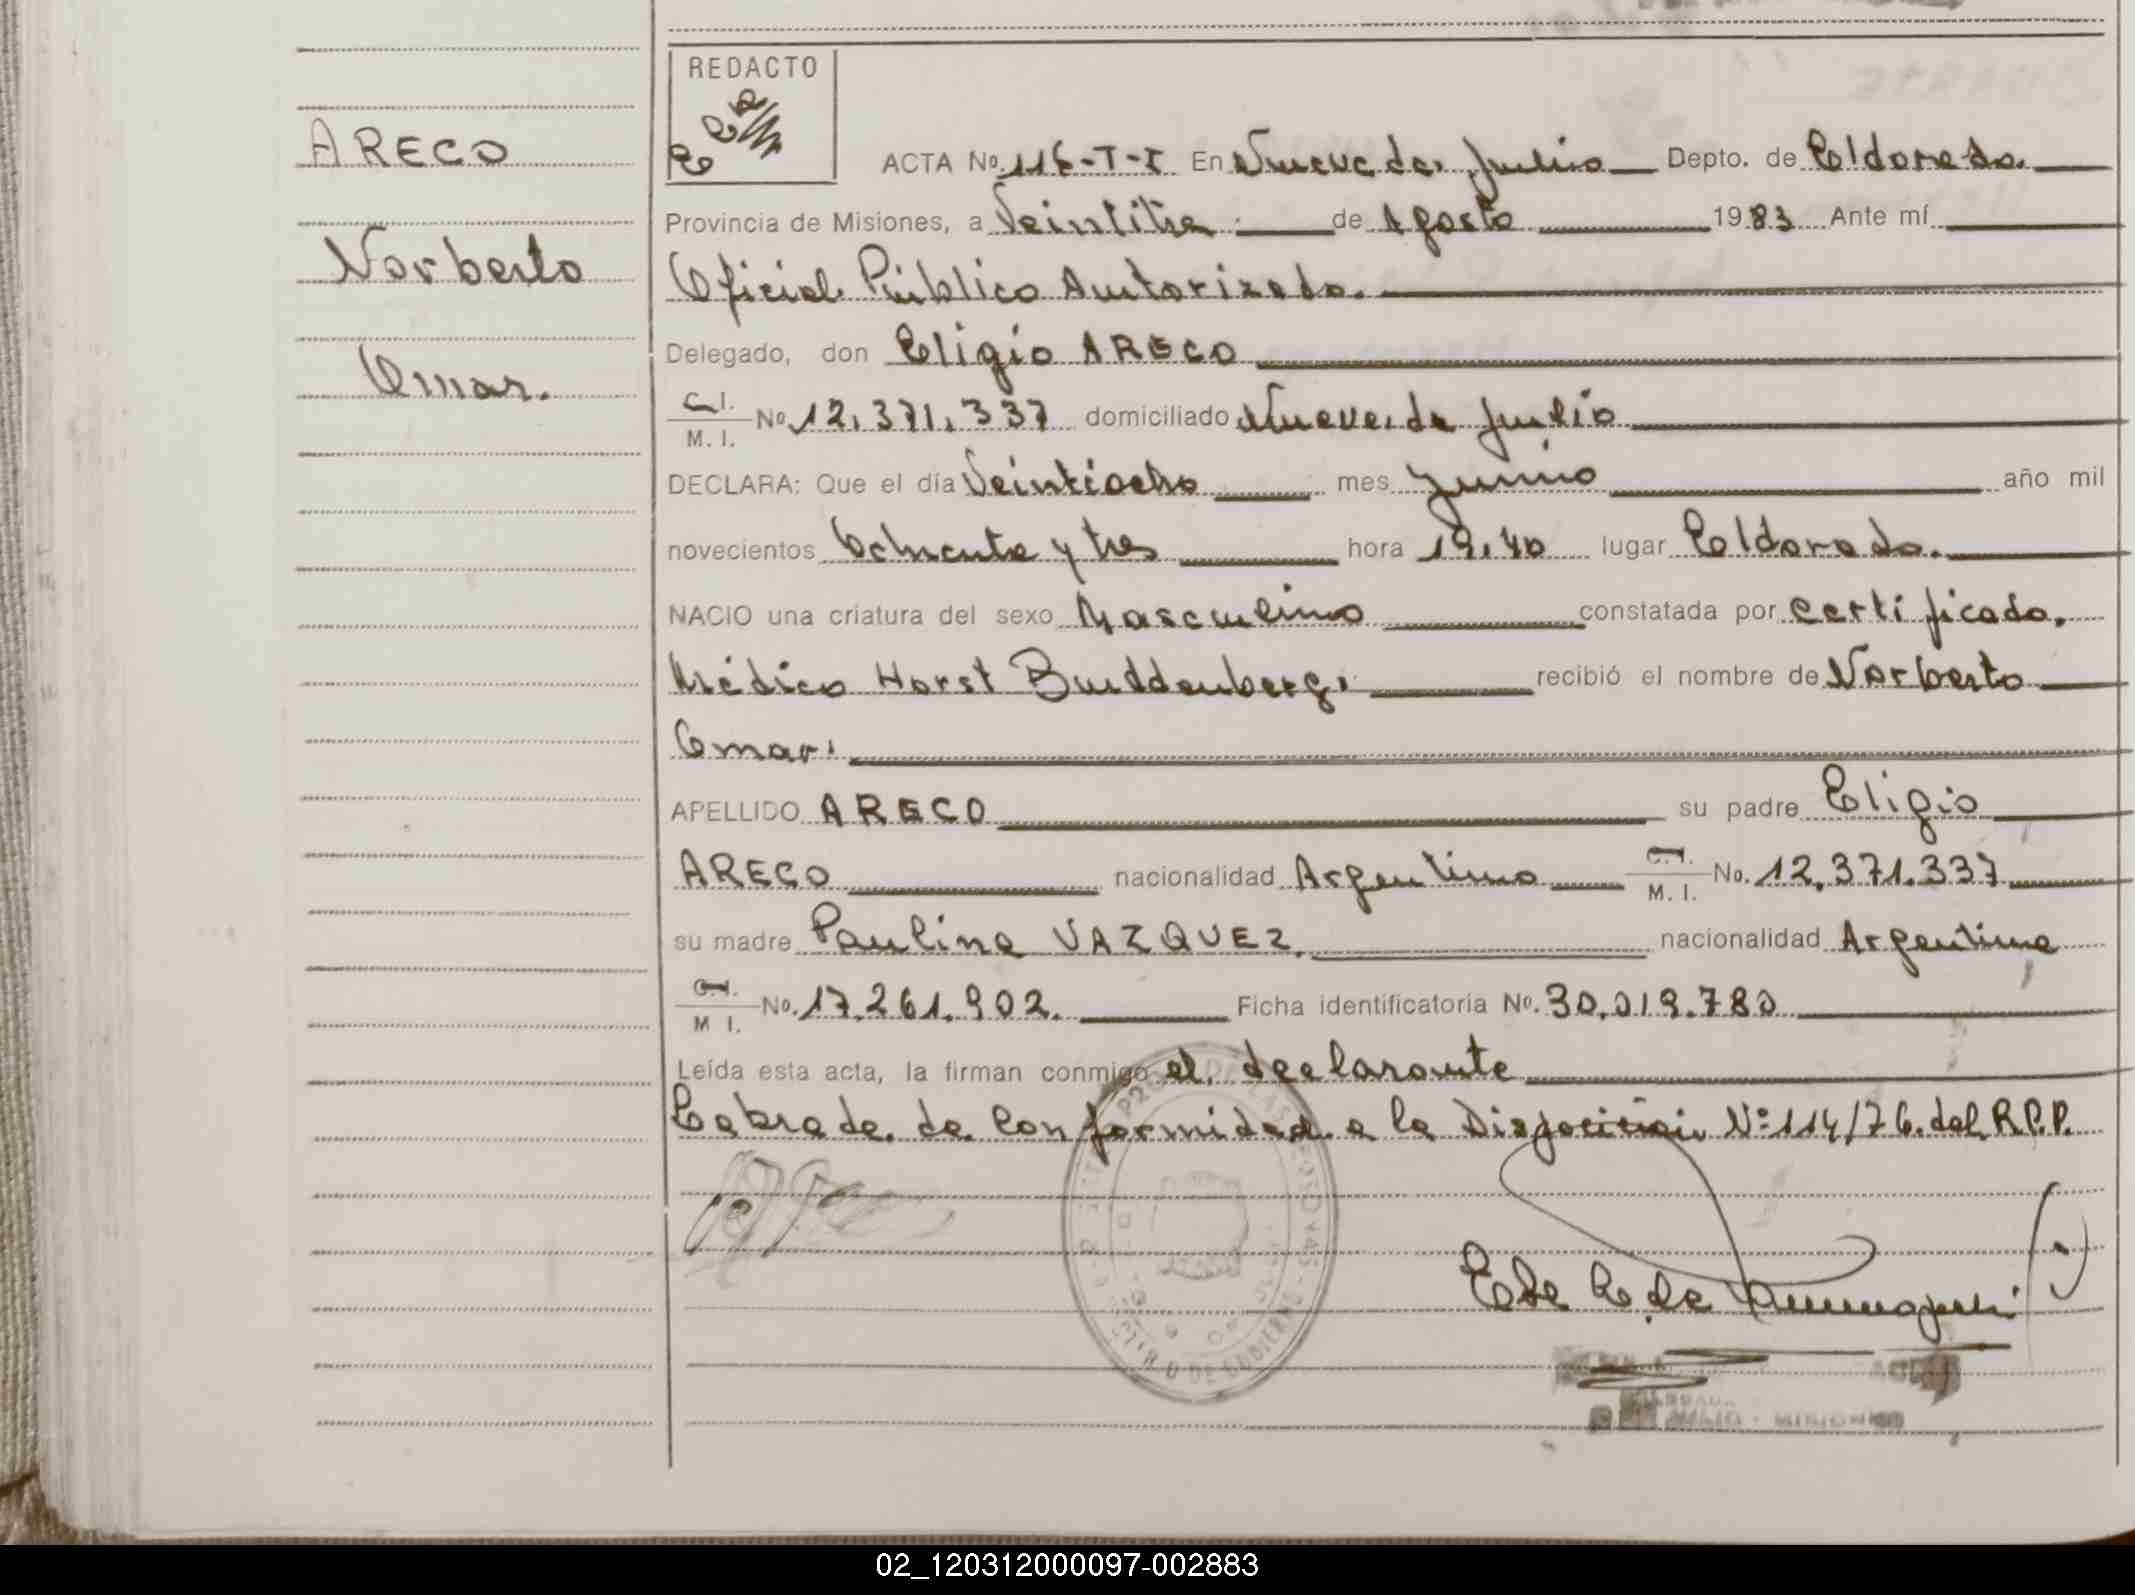 ARECO
Norberto
Omar.
REDACTO
ACTA No. 116-T-I En Nueve de Julio Depto. de Eldorado.
Provincia de Misiones, a Veintitre de Agosto 1983 Ante mí
Oficial Público Autorizado.
Delegado, don Eligio ARECO
C.I. M.I. No. 12.371.337 domiciliado Nueve de Julio
DECLARA: Que el día Veintiocho mes Junio año mil
novecientos Ochenta y tres hora 19,40 lugar Eldorado.
NACIO una criatura del sexo Masculino constatada por certificado.
Médico Horst Buddenberg. recibió el nombre de Norberto
Omar.
APELLIDO ARECO su padre Eligio
ARECO nacionalidad Argentino C.I. M.I. No. 12.371.337
su madre Paulina VAZQUEZ. nacionalidad Argentina
C.I. M.I. No. 17.261.902. Ficha identificatoria No. 30.019.780
Leída esta acta, la firman conmigo el declarante
Labrada de Conformidad a la Disposición Nº 114/76 del R.P.P.
02_120312000097-002883